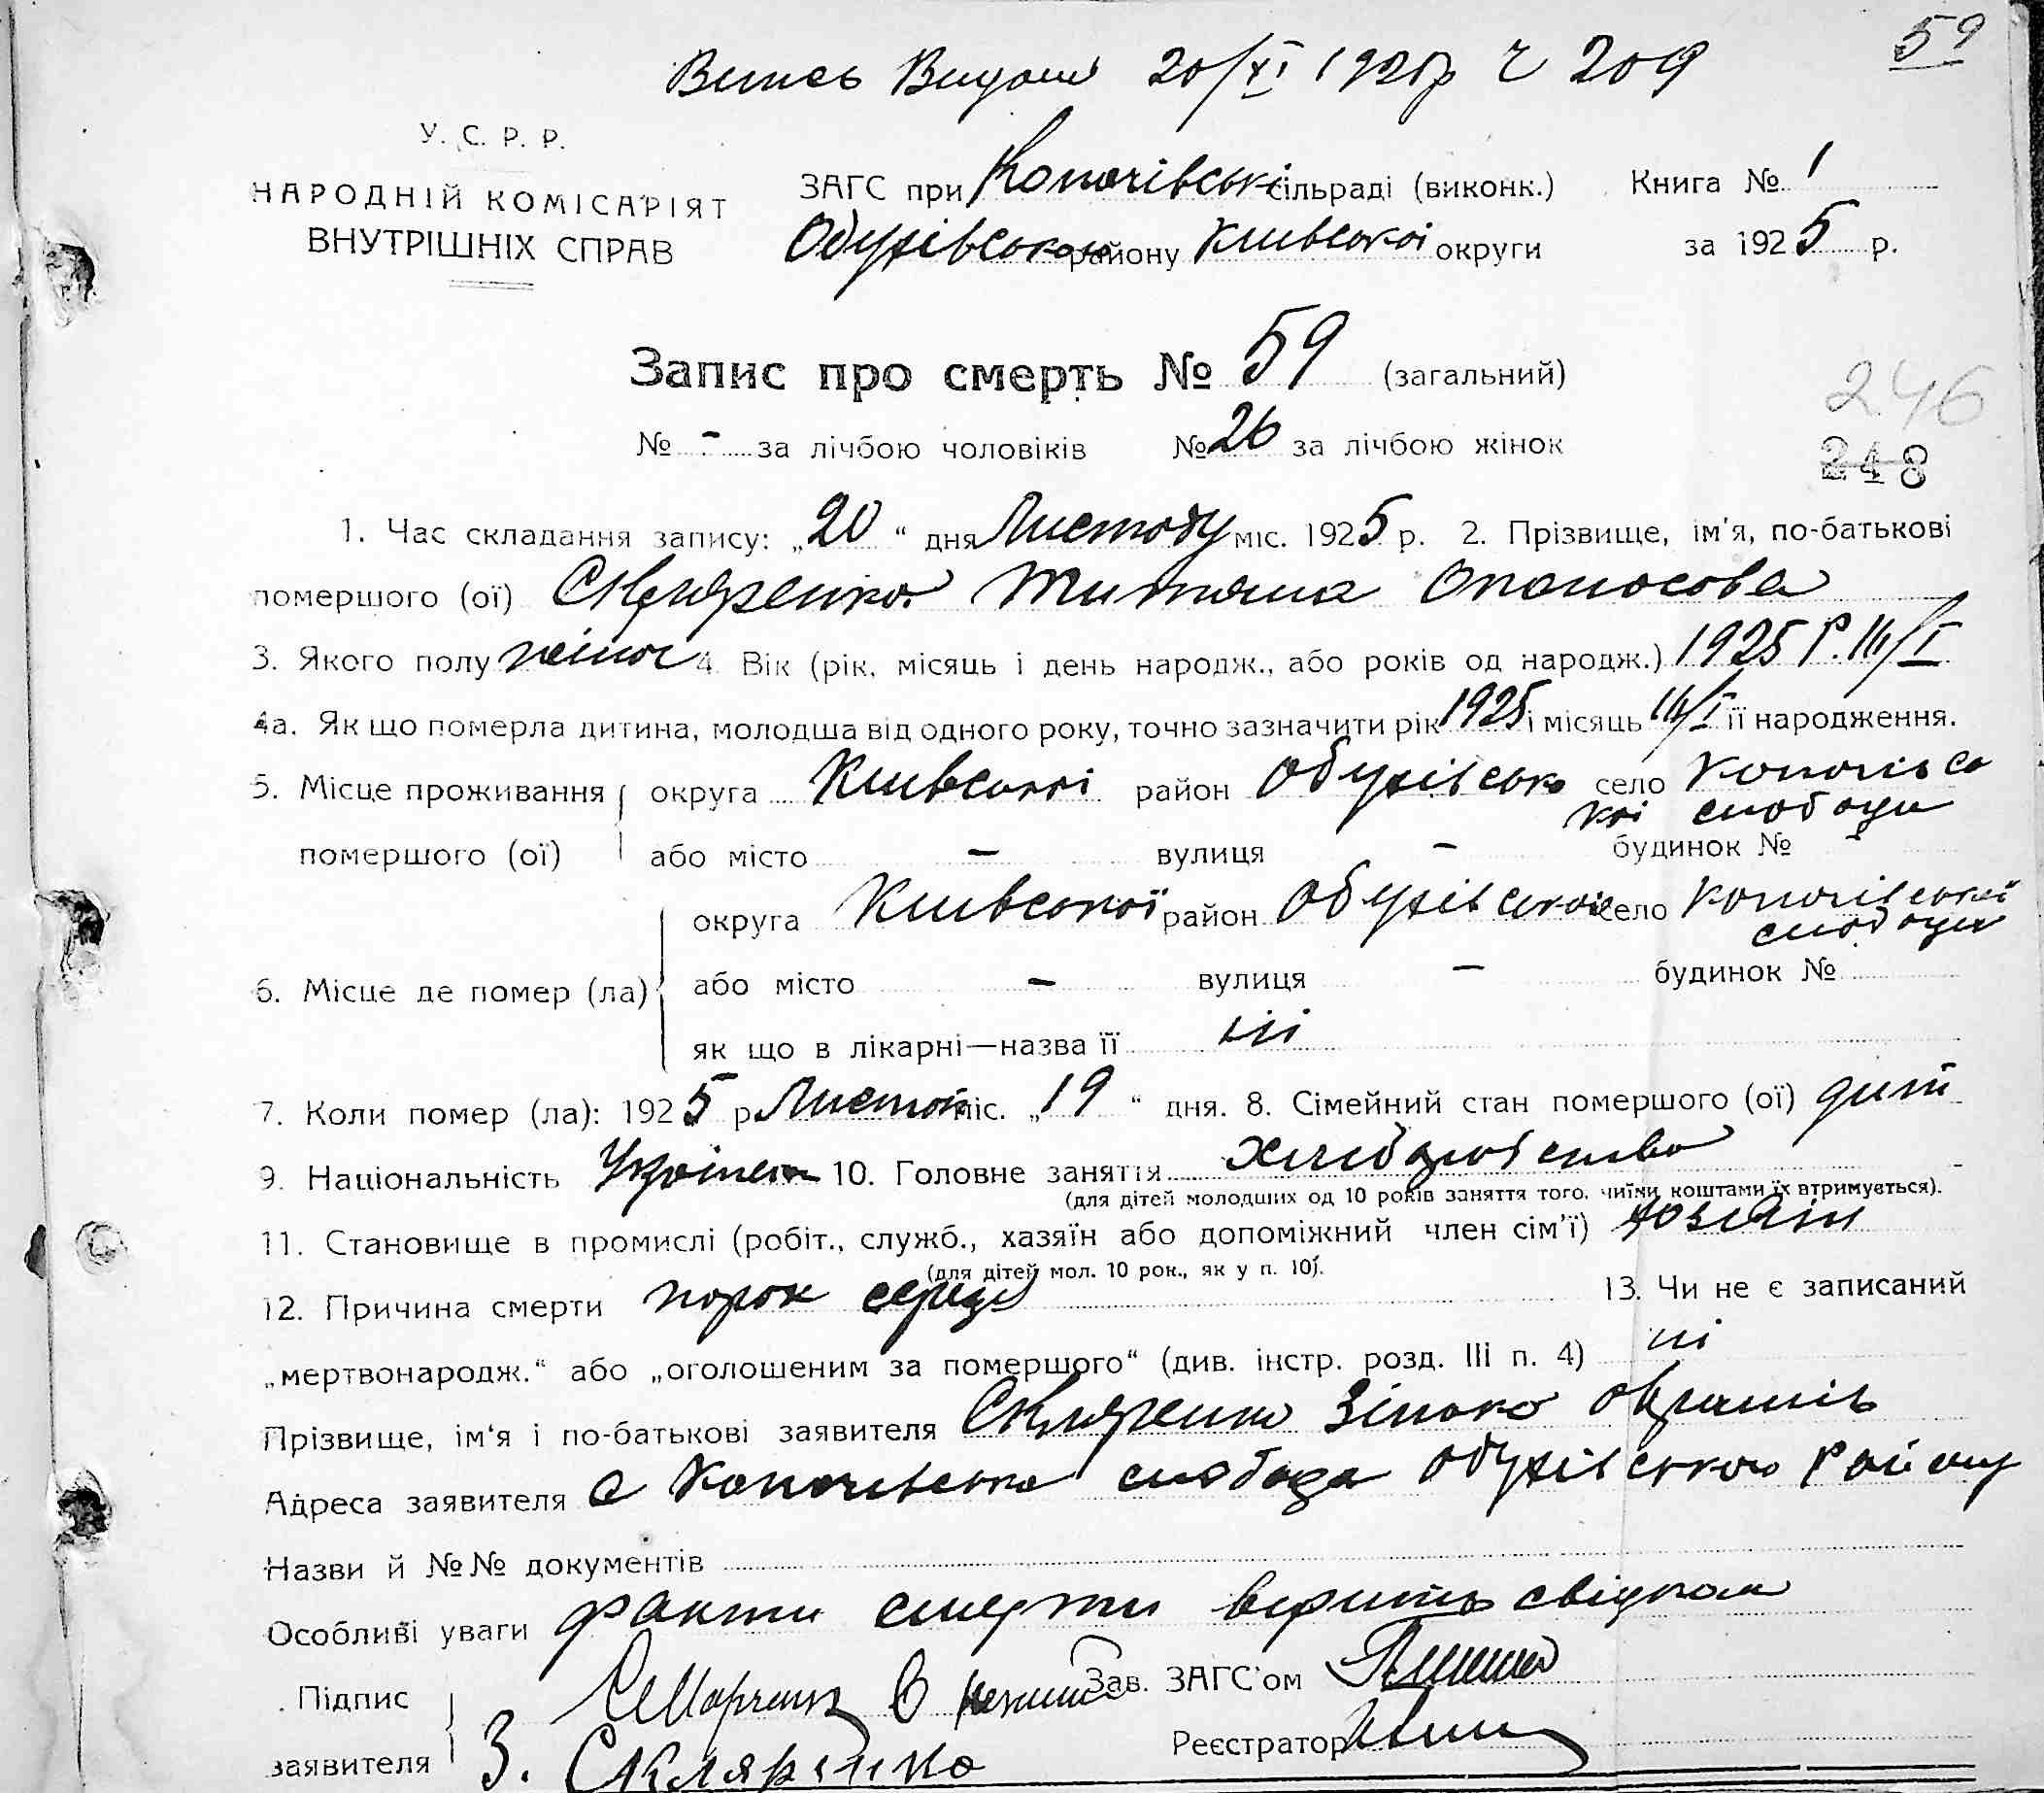 Витсь Видань 20/XI 1925р Ч 209
59
У. С. Р. Р.
НАРОДНІЙ КОМІСАРІЯТ
ВНУТРІШНІХ СПРАВ
ЗАГС при Копачівські сільраді (виконк.) Книга № 1
Обухівського району Київської округи за 1925 р.
Запис про смерть № 59 (загальний)
246
№ - за лічбою чоловіків № 26 за лічбою жінок
248
1. Час складання запису: „20“ дня Листопаду міс. 1925 р. 2. Прізвище, ім'я, по-батькові
помершого (ої) Скляренко Титяна Опанасова
3. Якого полу жіноч 4. Вік (рік, місяць і день народж., або років од народж.) 1925 р. 14/I
4а. Як що померла дитина, молодша від одного року, точно зазначити рік 1925 і місяць 14/I її народження.
5. Місце проживання округа Київської район Обухівсько село Копачівсь
кої слободи
помершого (ої) або місто - вулиця - будинок №
округа Київської район Обухівської село Копачівської
слободи
6. Місце де помер (ла) або місто - вулиця - будинок №
як що в лікарні—назва її ні
7. Коли помер (ла): 1925 р Листоп міс. „19“ дня. 8. Сімейний стан помершого (ої) дит
9. Національність Україн 10. Головне заняття хліборобство
(для дітей молодших од 10 років заняття того, чиїми коштами їх втримується).
11. Становище в промислі (робіт., служб., хазяїн або допоміжний член сім'ї) хозяїн
(для дітей мол. 10 рок., як у п. 10).
12. Причина смерти порок серця 13. Чи не є записаний
„мертвонародж.“ або „оголошеним за помершого“ (див. інстр. розд. III п. 4) ні
Прізвище, ім'я і по-батькові заявителя Скляренко Зінько
Адреса заявителя с Копачівська слобода Обухівського району
Назви й №№ документів
Особливі уваги факти смерти свідками
Підпис Зав. ЗАГС'ом
заявителя З. Скляренко Реєстратор